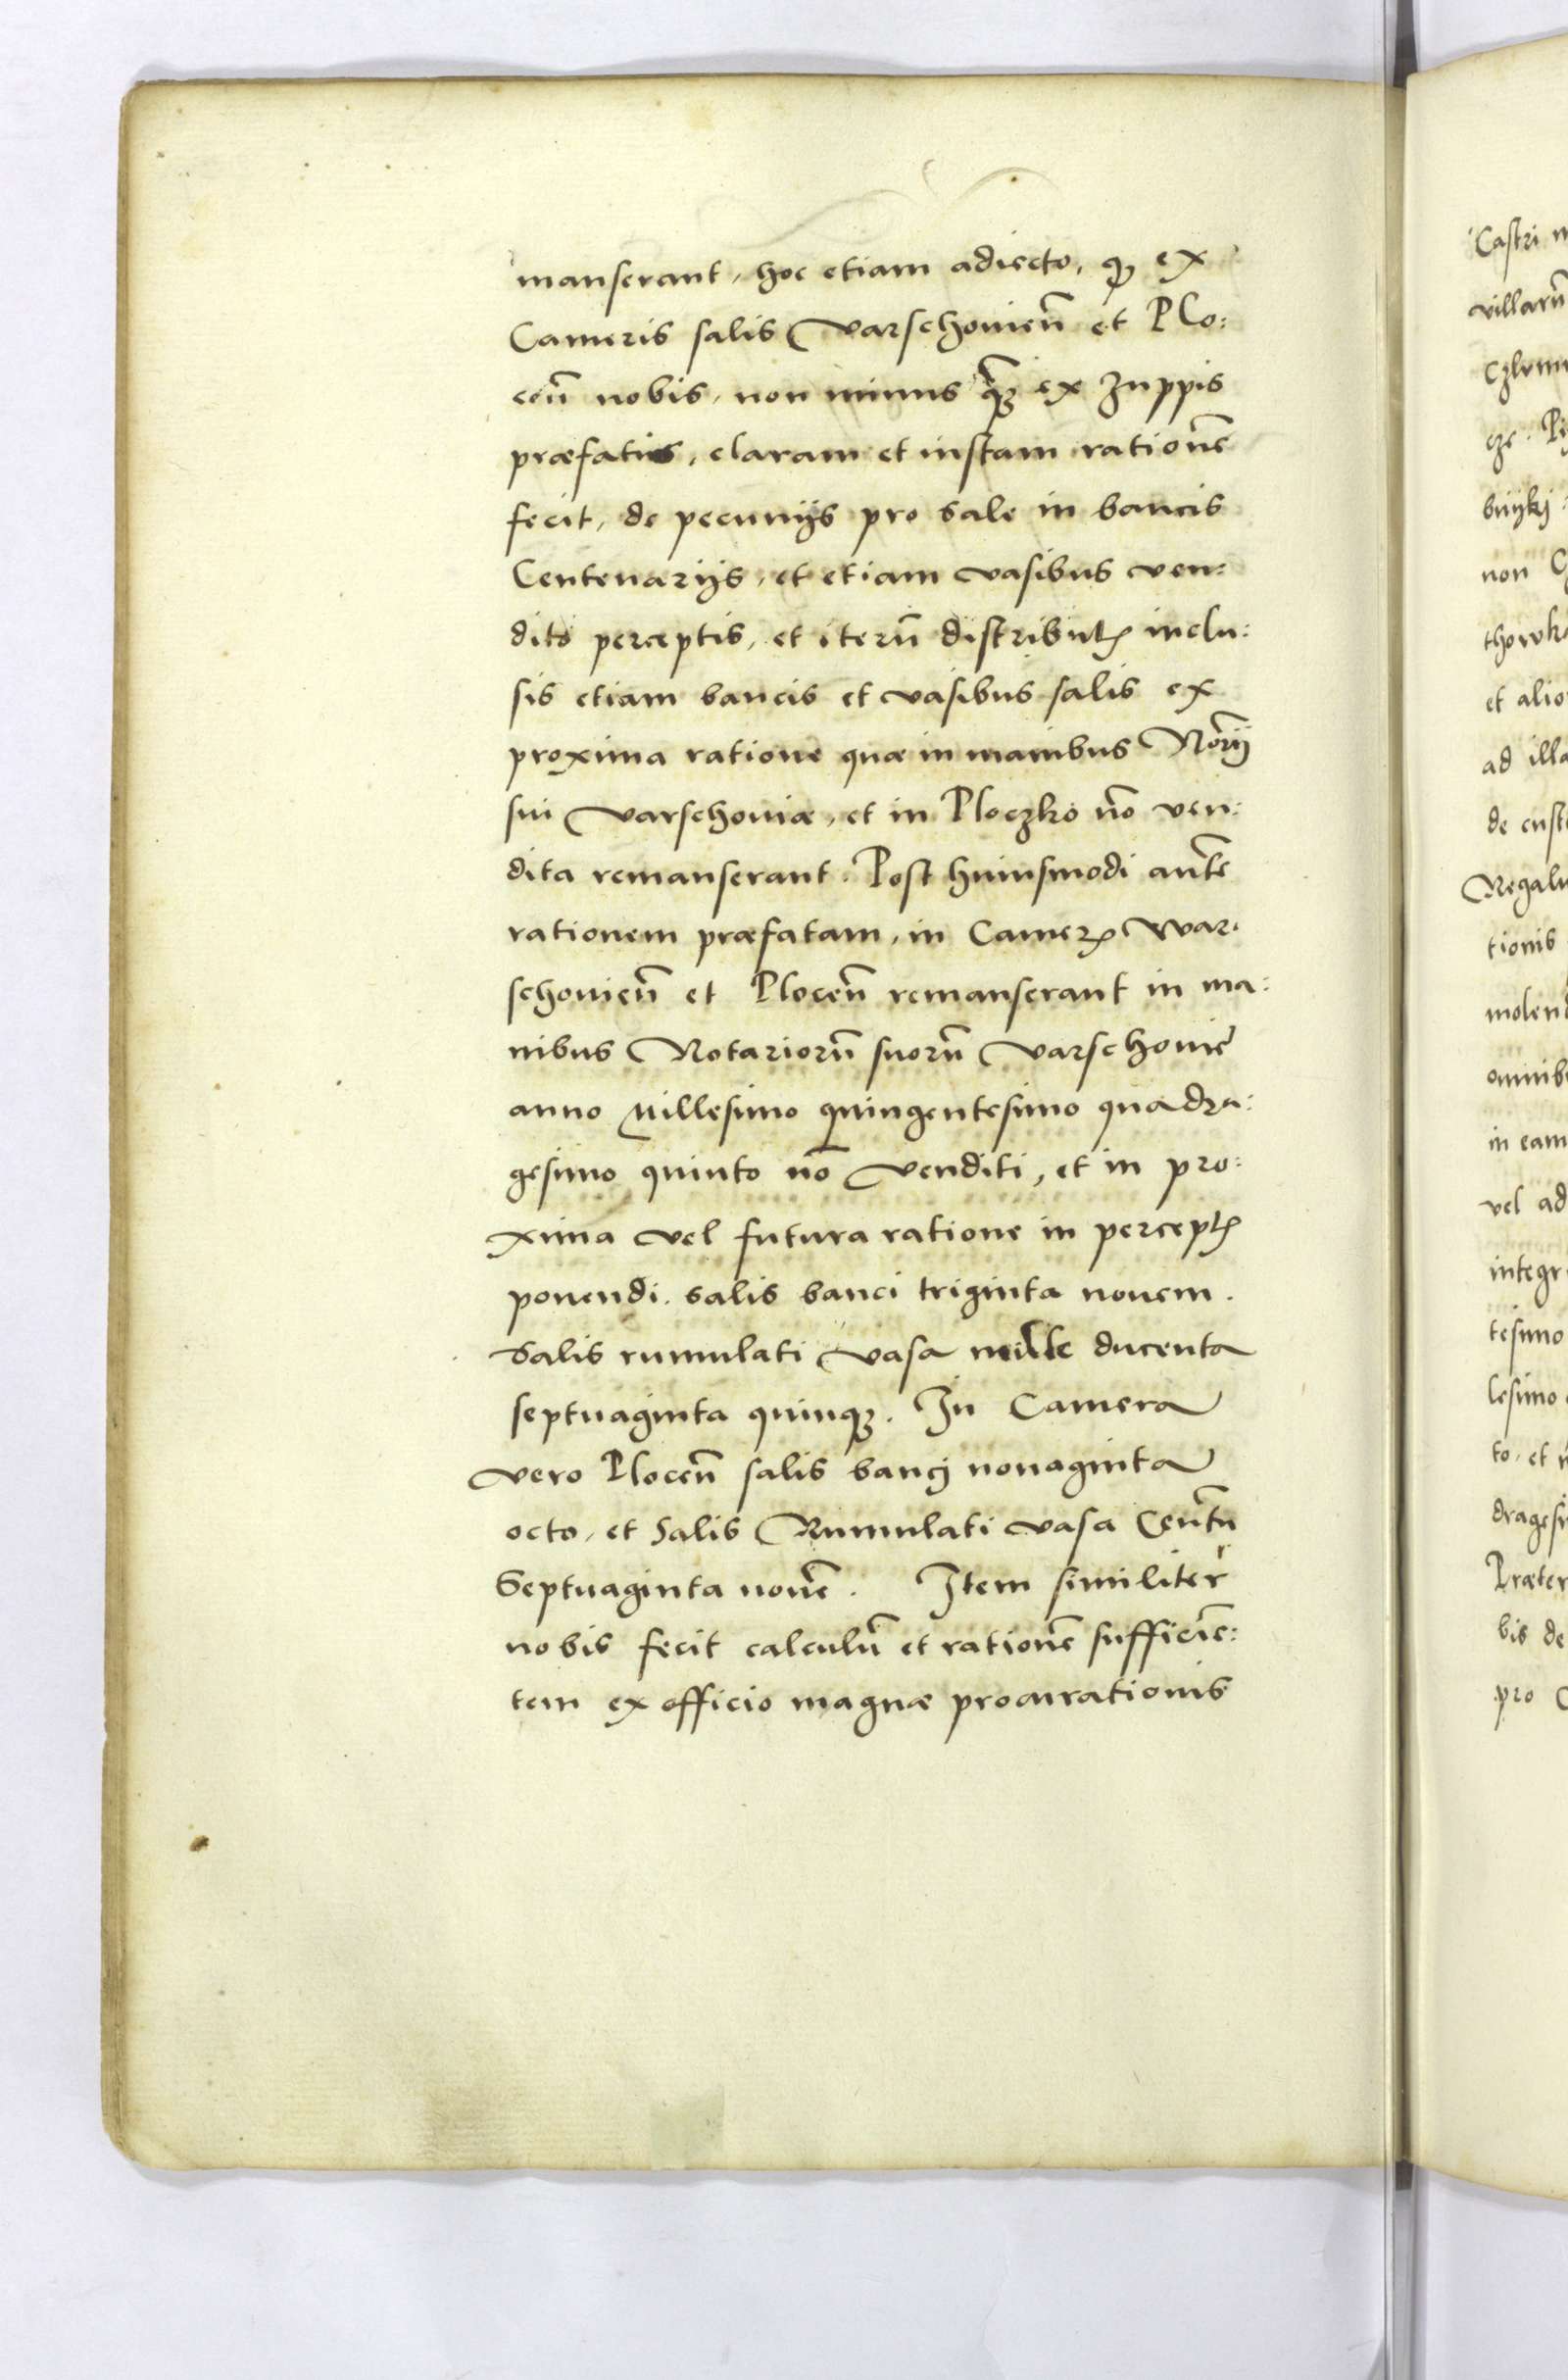 manserant, hoc etiam adiecto, q ex
Cameris salis Varschovień et Plo:
ceń nobis, non minus q̃ꝫ ex Zuppis
præfatis, claram et iustam rationẽ
fecit, de pecunijs pro sale in bancis
Centenarijs, et etiam vasibus ven:
dito perceptis, et iterũ distributꝭ inclu:
sis etiam bancis et vasibus salis ex
proxima ratione quæ in manibus Norij
sui Varschoviæ, et in Ploczko nõ ven:
dita remanserant. Post huiusmodi autẽ
rationem præfatam, in Camerꝭ War:
schovień et Ploceń remanserant in ma:
nibus Notariorũ suorũ Varschoviẽ
anno Millesimo quingentesimo quadra:
gesimo quinto nõ Venditi, et in pro:
xima vel futura ratione in perceptꝭ
ponendi. salis banci triginta novem.
Salis rumulati vasa mille ducenta
septuaginta quinqꝫ. In Camera
vero Ploceń salis bancj nonaginta
octo, et Salis Rumulati vasa Centũ
Septuaginta novẽ. Item similiter
nobis fecit calculũ et rationẽ sufficiẽ:
tem ex officio magnæ procurationis
Castri
villarũ
non
et alio
ad illa
de
Regal
tionis
molen
omnib
in eam
vel ad
integr
tesimo
lesimo
to, et
drages
Præter
bis de
pro